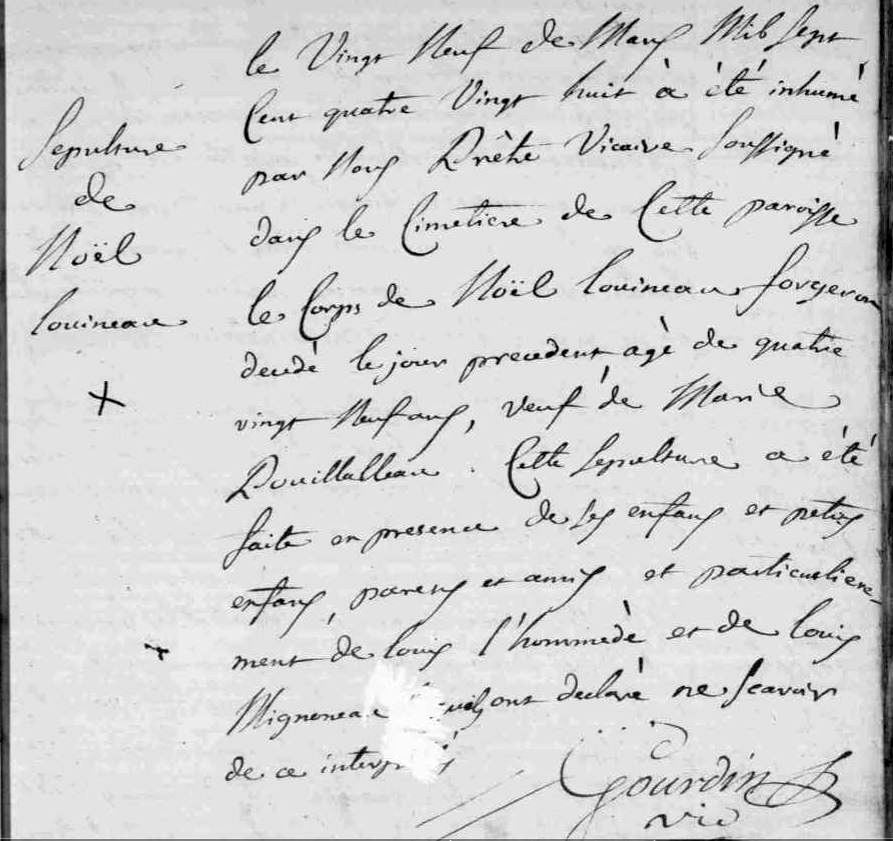 Sepulture
de
Noël
louineau
le Vingt Neuf de Mars Mil Sept
Cent quatre Vingt huit à été inhumé
par Nous Prêtre Vicaire Soussigné
dans le Cimetiere de Cette paroisse
le Corps de Noël louineau forgeron
decedé le jour precedent agé de quatre
vingt Neuf ans, veuf de Marie
Douillalleau. Cette sepulture a été
faite en presence de ses enfans et petits
enfans, parens et amis et particuliere-
ment de louis l'hommedé et de louis
Migneneau ont declaré ne scavoir
de ce
Gourdin
vic